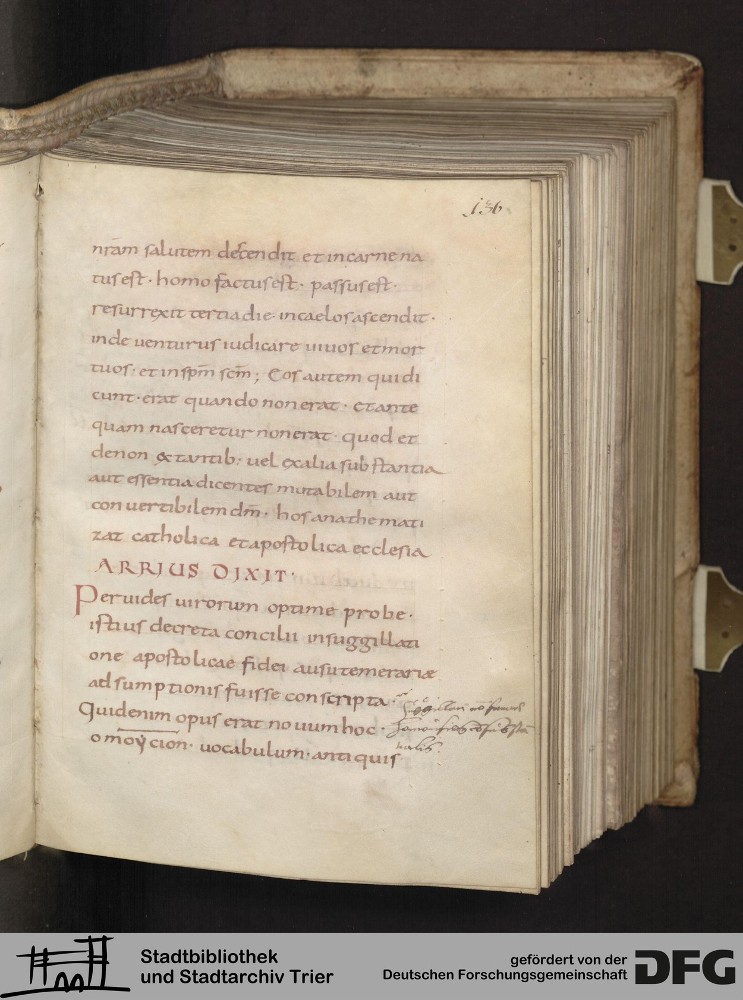 136
nr̄am salutem descendit et incarnena
tus est · homo factus est · passus est ·
resurrexit tertia die · incaelos ascendit ·
inde uenturus iudicare uiuos et mor
tuos · et in sp̄m sc̄m; Eos autem qui di
cunt · erat quando non erat · et ante
quam nasceretur non erat · quod et
de non extantib: uel ex alia substantia
aut essentia dicentes mutabilem aut
conuertibilem dm̄ · hos anathemati
zat catholica et apostolica ecclesia
ARRIUS DIXIT ·
Peruides uirorum optime probe ·
istius decreta concilii insuggillati
one apostolicae fidei ausu temerariae
adsumptionis fuisse conscripta ·
Quid enim opus erat nouum hoc ·
omoycion · uocabulum · antiquis
Stadtbibliothek
und Stadtarchiv Trier
gefördert von der
Deutschen Forschungsgemeinschaft
DFG